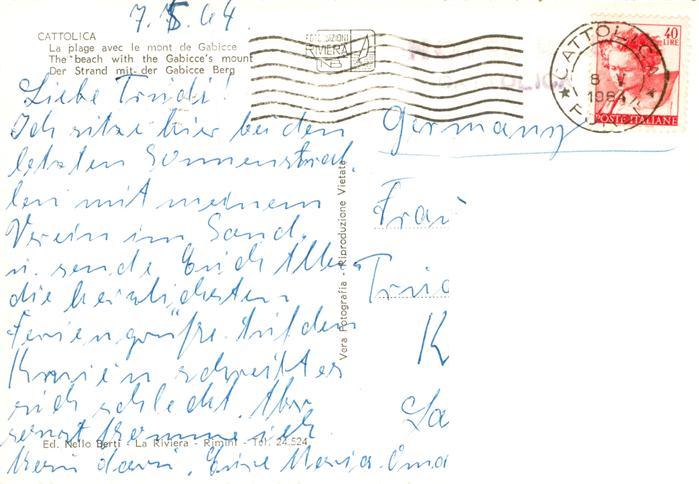 7. 5. 64
CATTOLICA
La plage avec le mont de Gabicce
The beach with the Gabicce's mount
Der Strand mit der Gabicce Berg
Liebe Trudi!
Ich sitze hier bei den
letzten Sonnenstrah-
len mit meinem
Verein im Sand.
u. sende Euch Allen
die herzlichsten
Feriengrüße. Auf den
Knien schreibt es
sich schlecht. Aber
sonst komme ich
kein dazu. Eure Maria-Oma
Ed. Nello Berti - La Riviera - Rimini - Tel. 24.524
Vera Fotografia - Riproduzione Vietata
FOTO EDIZIONI
RIVIERA
CATTOLICA
8 V
1964
40
LIRE
POSTE ITALIANE
Germany
Frau
Trud
K
La